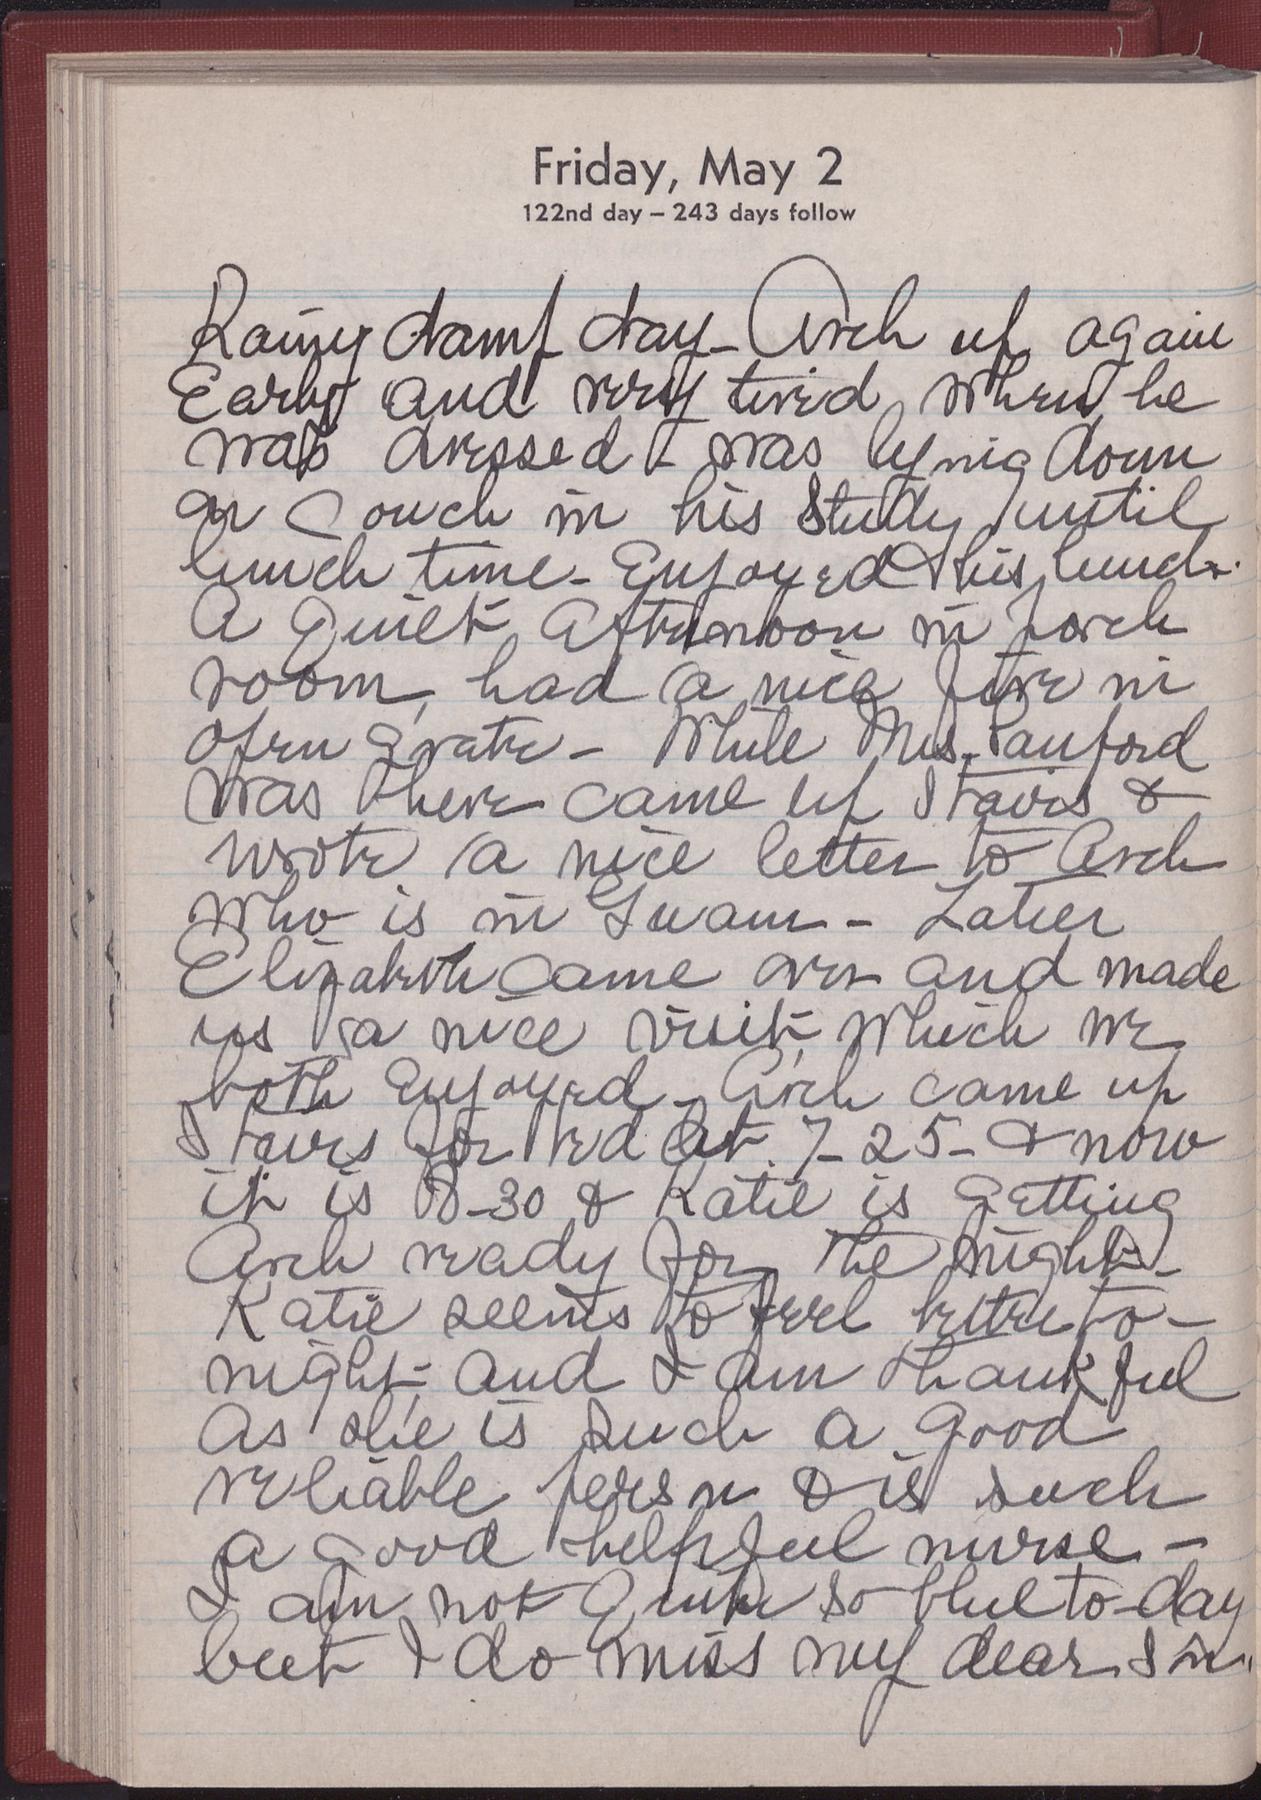 Friday, May 2
122nd day – 243 days follow
Rainy damp day - Arch up again
Early and very tired when he
was dressed & was lying down
on Couch in his Study until
lunch time - Enjoyed his lunch.
A quiet afternoon in porch
room, had a nice fire in
open grate - While Mrs. Panford
was there came up stairs &
wrote a nice letter to Arch
who is in Guam - Later
Elizabeth came over and made
us a nice visit, which we
both Enjoyed - Arch came up
stairs for bed at 7-25 - & now
it is 8-30 & Katie is getting
Arch ready for the night -
Katie seems to feel better to-
night, and I am thankful
as she is such a good
reliable person & is such
a good helpful nurse -
I am not quite so blue to-day
but I do miss my dear